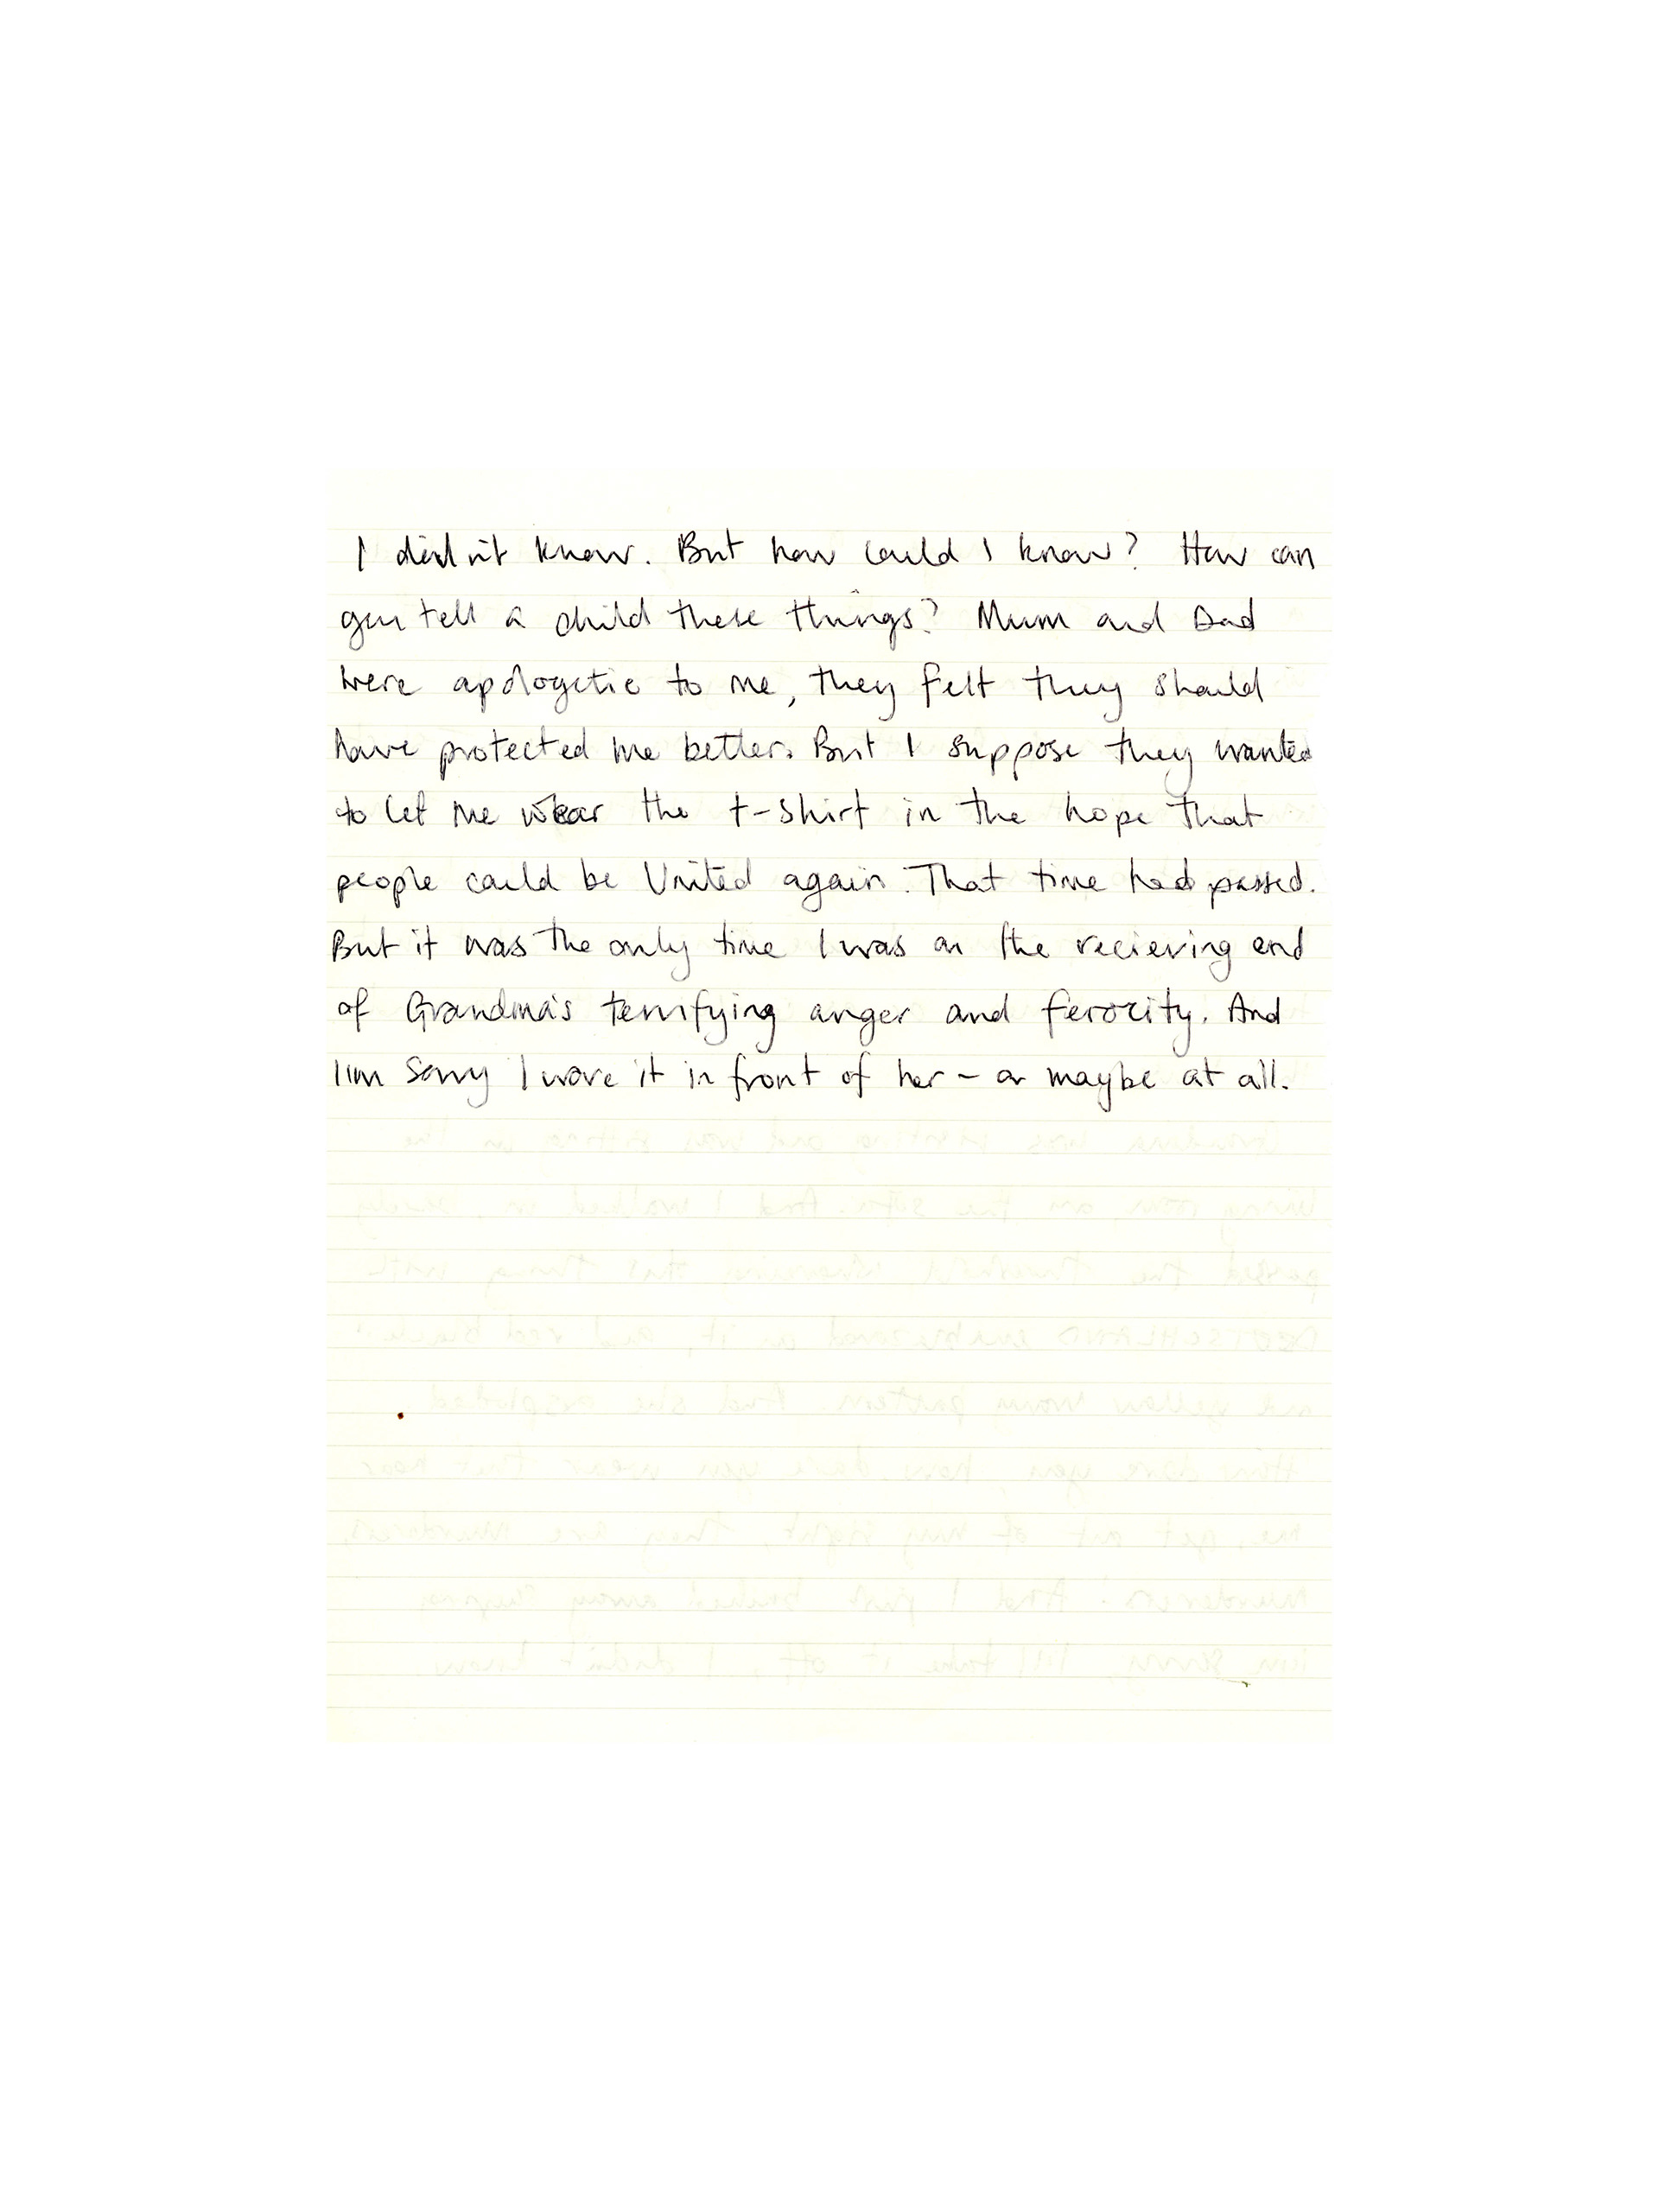 I didn't know. But how could I know? How can
you tell a child these things? Mum and Dad
were apologetic to me, they felt they should
have protected me better. But I suppose they wanted
to let me wear the t-shirt in the hope that
people could be United again. That time had passed.
But it was the only time I was on the recieving end
of Grandma's terrifying anger and ferocity. And
I'm sorry I wore it in front of her - or maybe at all.